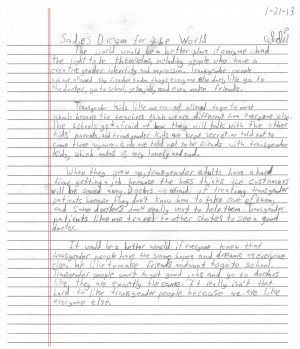 1-21-13
Sadie's Dream for the World
Sadie
The world would be a better place if everyone had
the right to be themselves, including people who have a
creative gender identity and expression. Transgender people
are not allowed the freedom to do things everyone else does, like go to
the doctor, go to school, get a job, and even make friends.
Transgender kids like me are not allowed to go to most
schools because the teachers think we are different from everyone else.
The schools get afraid of how they will talk with the other
kids' parents, and transgender kids are kept secret or told not to
come there anymore. Kids are told not to be friends with transgender
kids, which makes us very lonely and sad.
When they grow up, transgender adults have a hard
time getting a job because the boss thinks the customers
will be scared away. Doctors are afraid of treating transgender
patients because they don't know how to take care of them,
and some doctors don't really want to help them. Transgender
patients like me travel to other states to see a good
doctor.
It would be a better world if everyone knew that
transgender people have the same hopes and dreams as everyone
else. We like to make friends and want to go to school.
Transgender people want to get good jobs and go to doctors
like they are exactly the same. It really isn't that
hard to like transgender people because we are like
everyone else.